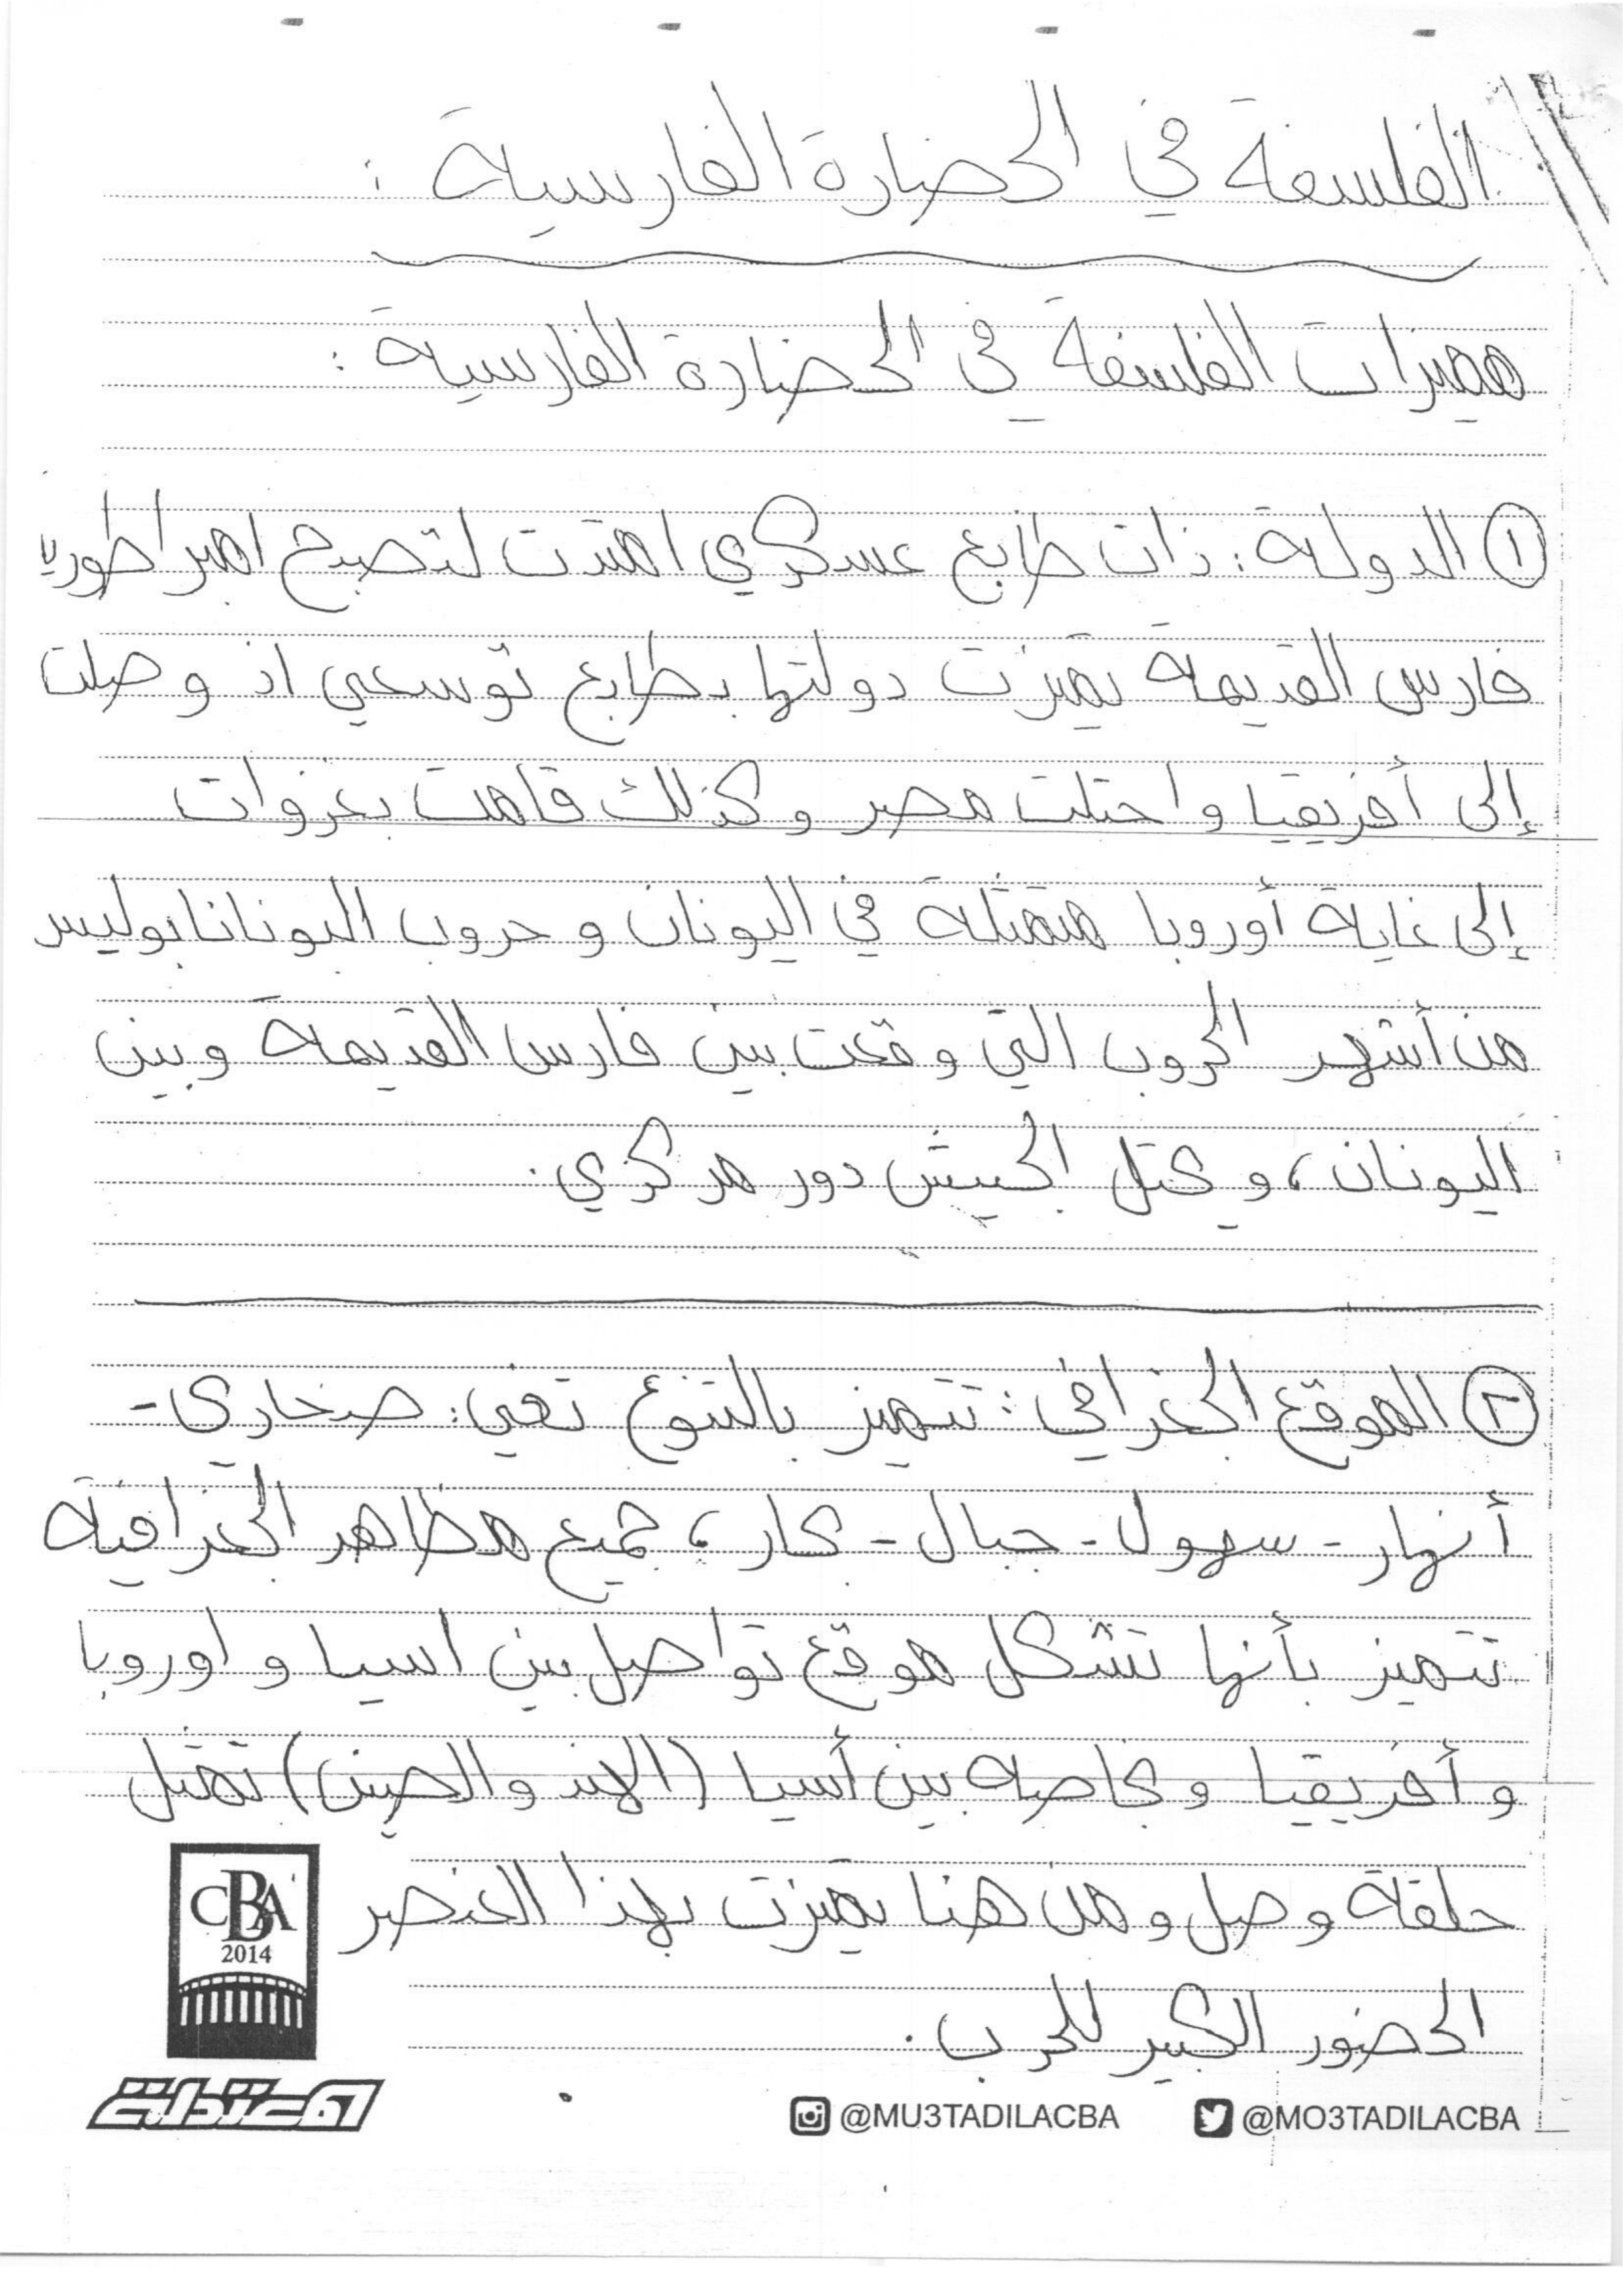 الفلسفة في الحضارة الفارسية :
مميزات الفلسفة في الحضارة الفارسية :
① الدولة : ذات طابع عسكري امتدت لتصبح امبراطوريا
فارس القديمة تميزت دولتها بطابع توسعي اذ وصلت
إلى أفريقيا واحتلت مصر وكذلك قامت بغزوات
إلى غاية أوروبا متمثلة في اليونان وحروب البونانابوليس
من أشهر الحروب التي وقعت بين فارس القديمة وبين
اليونان، ويحتل الجيش دور مركزي.
② الموقع الجغرافي : تتميز بالتنوع تعني : صخاري -
أنهار - سهول - جبال - بحار، جميع مظاهر الجغرافية
تتميز بأنها تشكل موقع تواصل بين اسيا و اوروبا
و أفريقيا وبخاصة بين أسيا (الهند والصين) تمثل
حلقة وصل ومن هنا تميزت بهذا العنصر
الحضور الكبير للحرب.
CBA
2014
معتدلة
@MU3TADILACBA @MO3TADILACBA